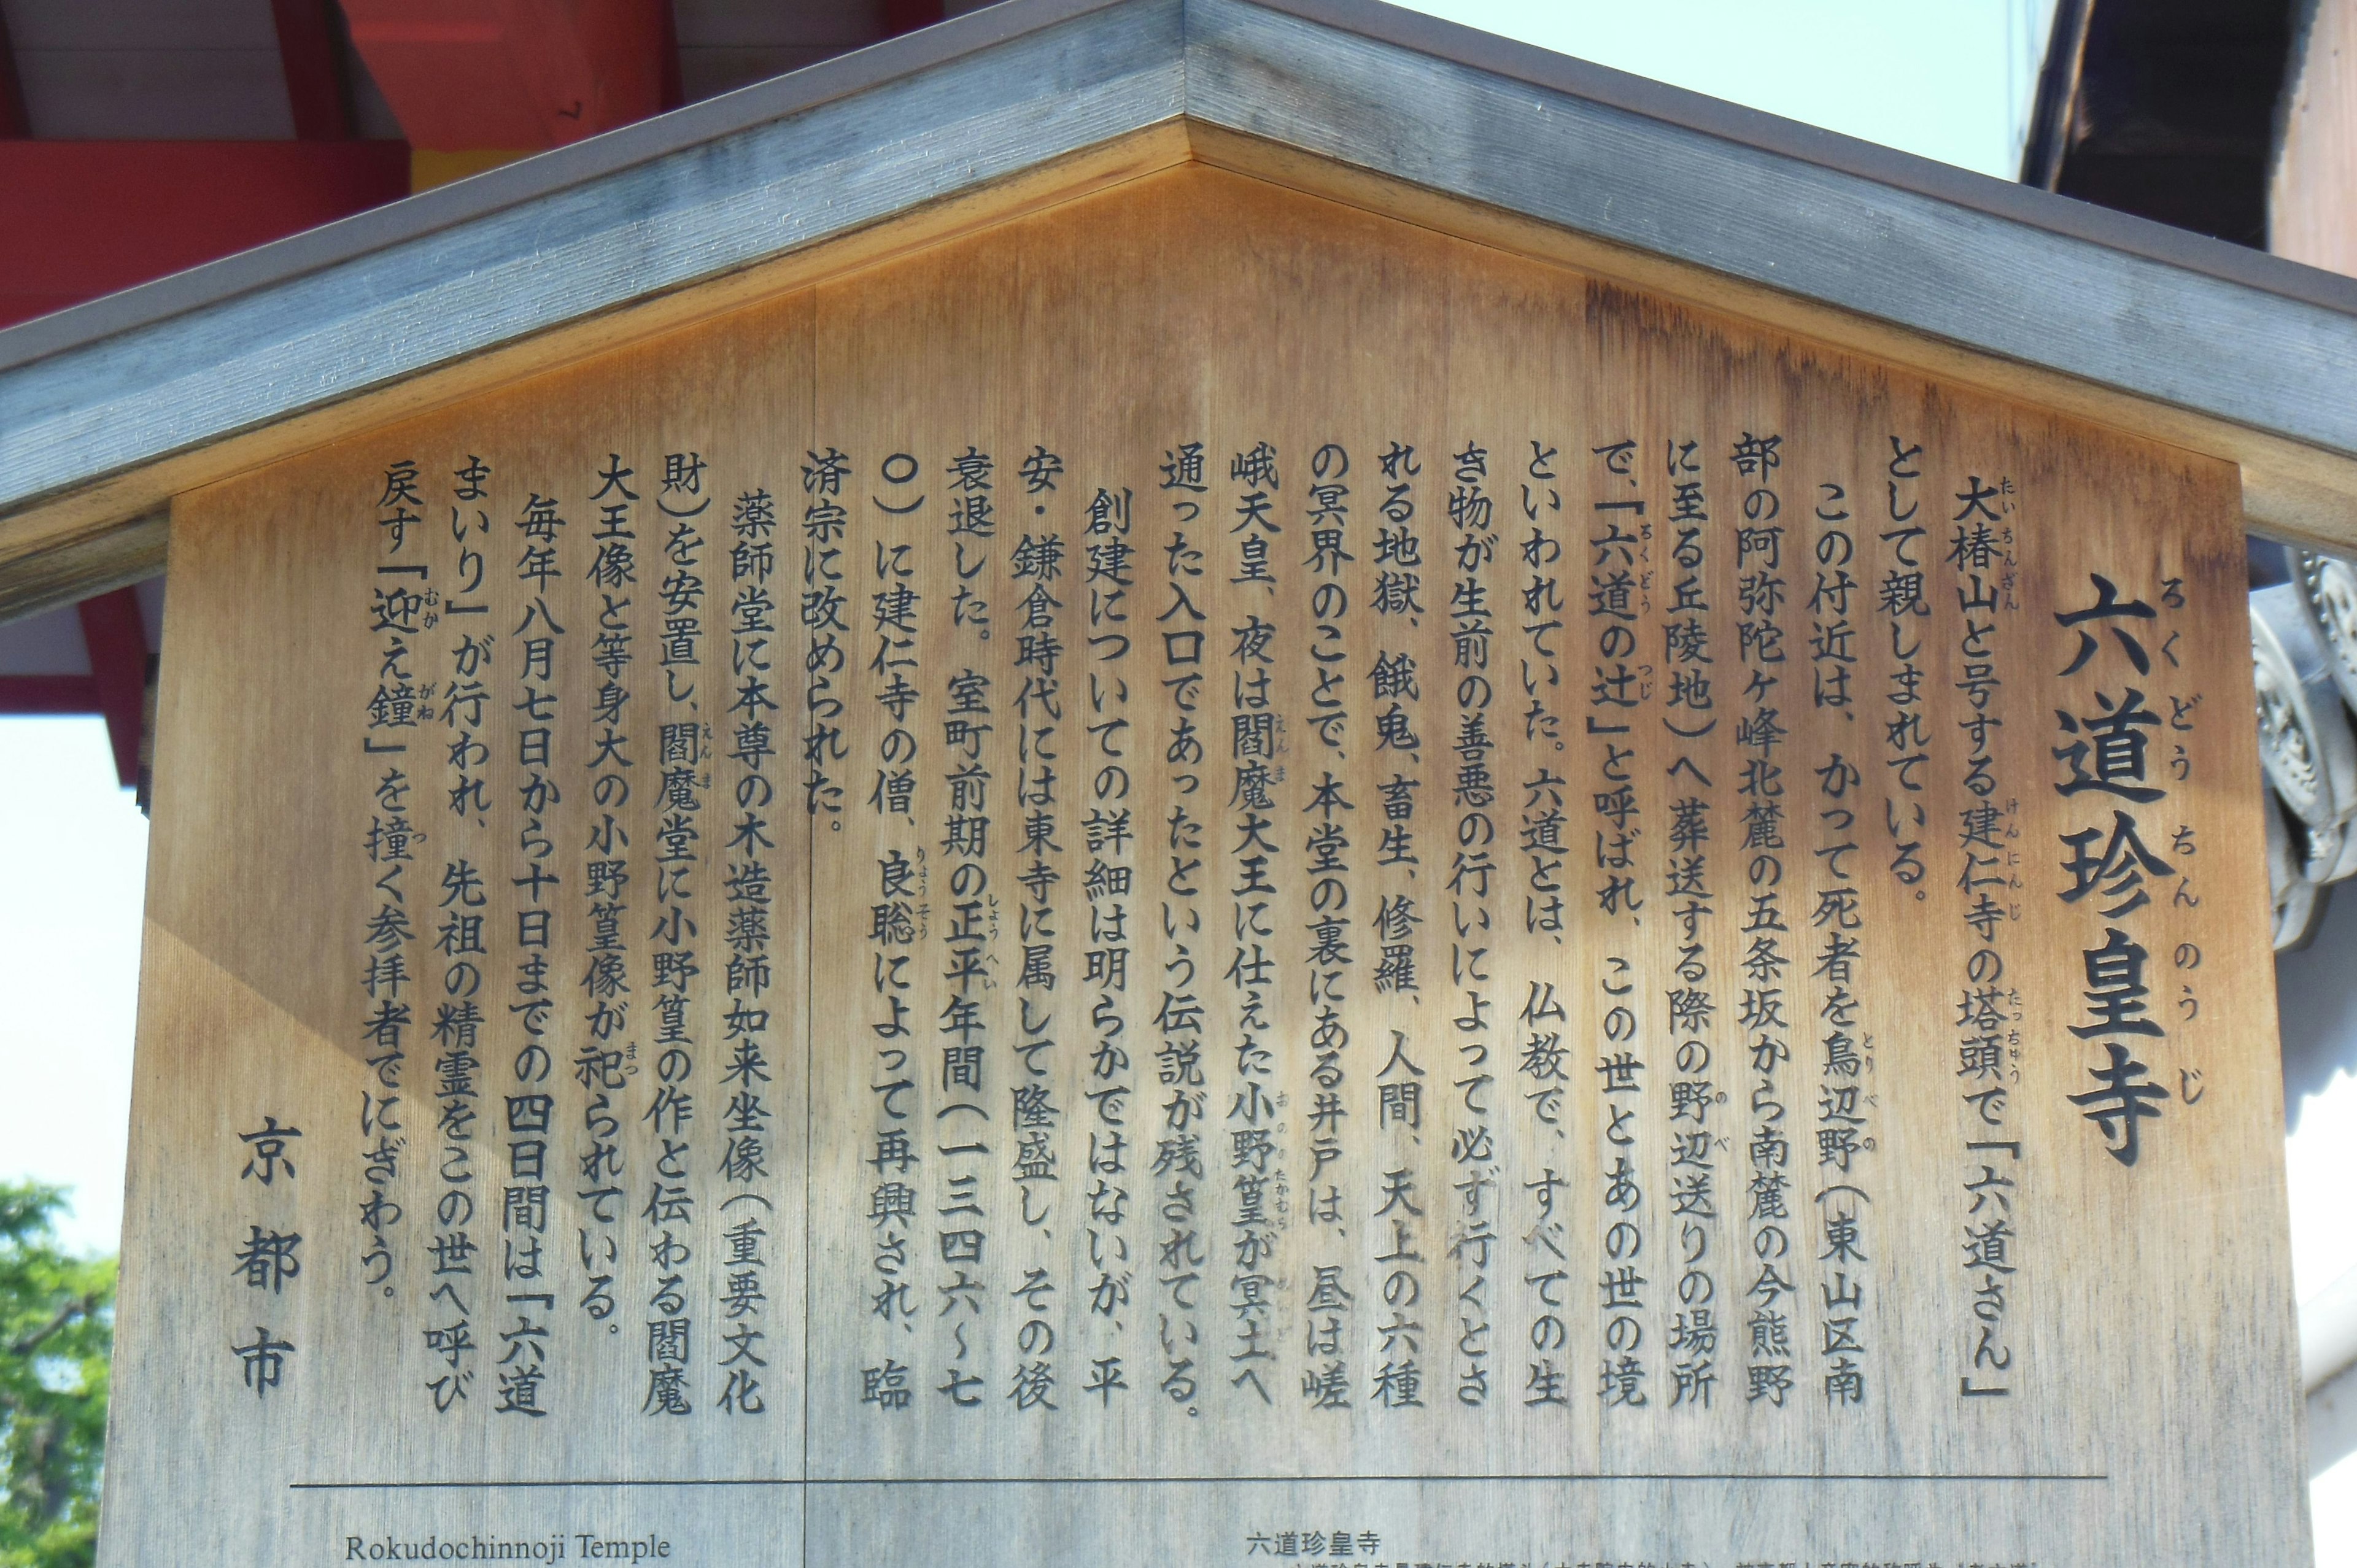 六道珍皇寺
ろくどうちんのうじ
大椿山と号する建仁寺の塔頭で「六道さん」
として親しまれている。
この付近は、かって死者を鳥辺野(東山区南
部の阿弥陀ヶ峰北麓の五条坂から南麓の今熊野
に至る丘陵地)へ葬送する際の野辺送りの場所
で、「六道の辻」と呼ばれ、この世とあの世の境
といわれていた。六道とは、仏教で、すべての生
き物が生前の善悪の行いによって必ず行くとさ
れる地獄、餓鬼、畜生、修羅、人間、天上の六種
の冥界のことで、本堂の裏にある井戸は、昼は嵯
峨天皇、夜は閻魔大王に仕えた小野篁が冥土へ
通った入口であったという伝説が残されている。
創建についての詳細は明らかではないが、平
安・鎌倉時代には東寺に属して隆盛し、その後
衰退した。室町前期の正平年間(一三四六〜七
〇)に建仁寺の僧、良聡によって再興され、臨
済宗に改められた。
薬師堂に本尊の木造薬師如来坐像(重要文化
財)を安置し、閻魔堂に小野篁の作と伝わる閻魔
大王像と等身大の小野篁像が祀られている。
毎年八月七日から十日までの四日間は「六道
まいり」が行われ、先祖の精霊をこの世へ呼び
戻す「迎え鐘」を撞く参拝者でにぎわう。
京都市
Rokudochinnoji Temple
六道珍皇寺